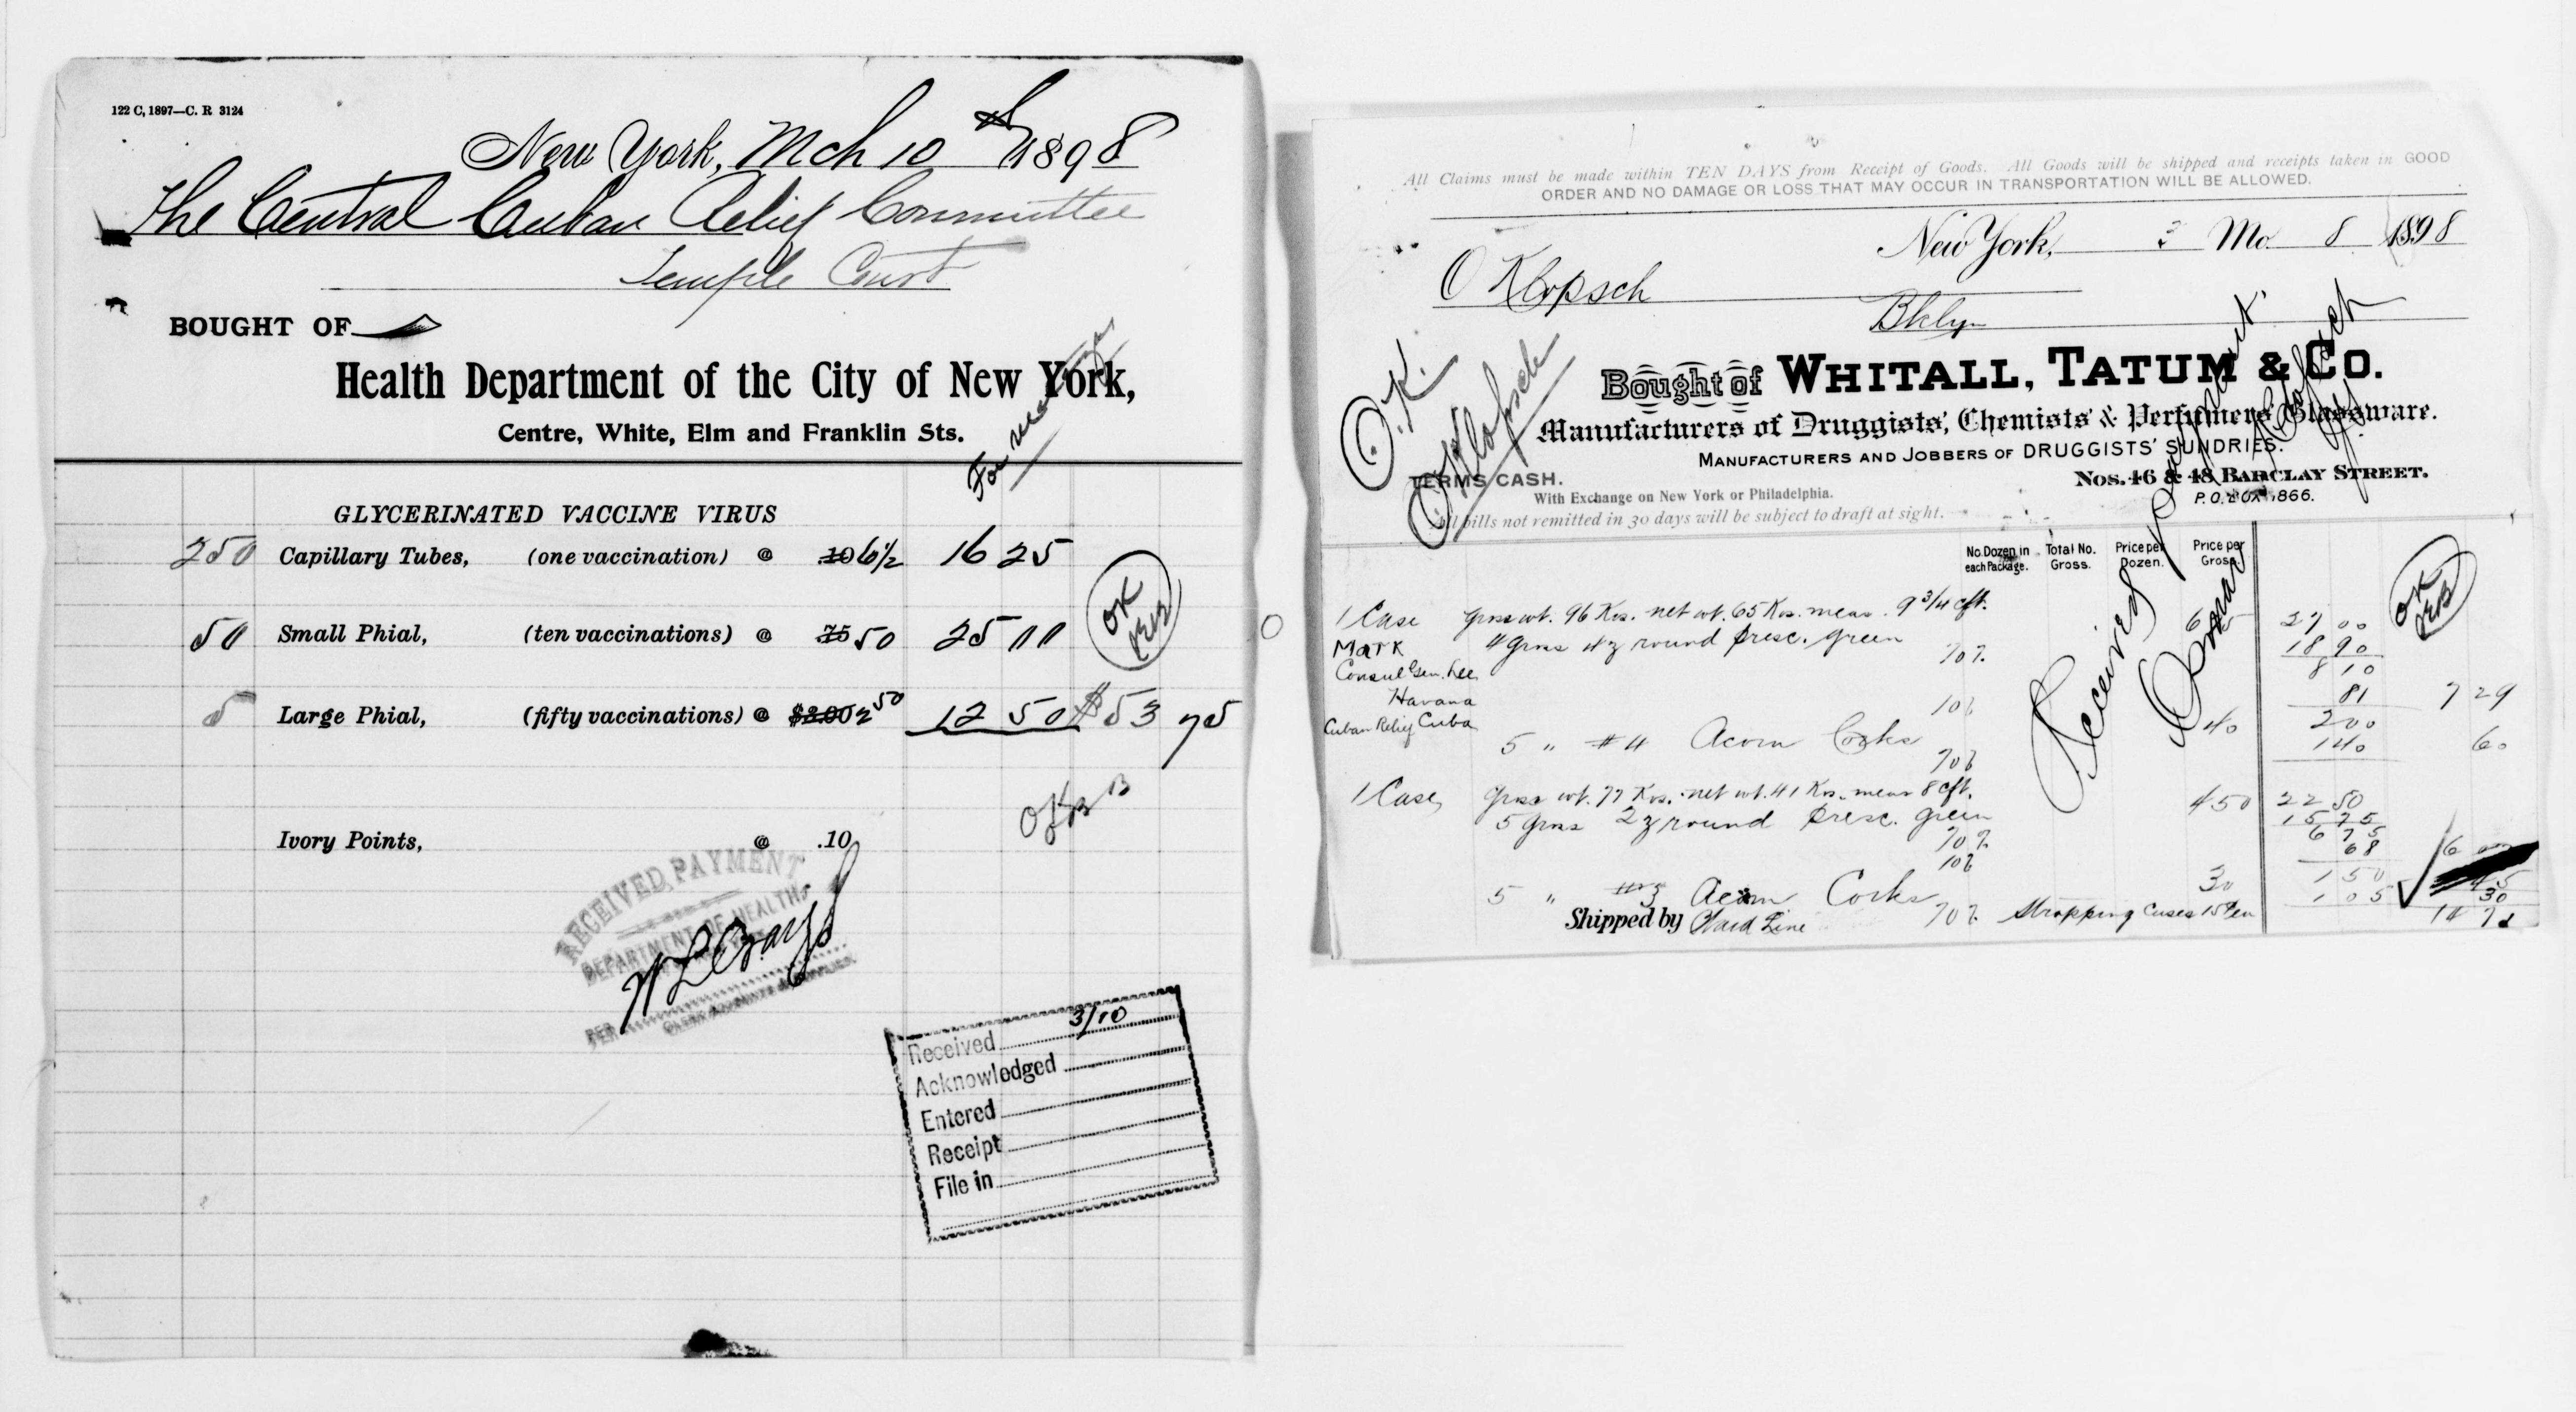 122 C, 1897—C. R 3124
New York, Mch 10th 1898
The Central Cuban Relief Committee
Temple Court
BOUGHT OF
Health Department of the City of New York,
Centre, White, Elm and Franklin Sts.
For
GLYCERINATED VACCINE VIRUS
250 Capillary Tubes, (one vaccination) @ .10 6½ 16 25
50 Small Phial, (ten vaccinations) @ .75 50 25 00
OK
5 Large Phial, (fifty vaccinations) @ $2.00 2 50 12 50 $53 75
OK
Ivory Points, @ .10
RECEIVED PAYMENT
DEPARTMENT OF HEALTH
PER
Received 3/10
Acknowledged
Entered
Receipt
File in
All Claims must be made within TEN DAYS from Receipt of Goods. All Goods will be shipped and receipts taken in GOOD
ORDER AND NO DAMAGE OR LOSS THAT MAY OCCUR IN TRANSPORTATION WILL BE ALLOWED.
New York, 3 Mo 8 1898
O Klopsch
Bklyn
O.K.
O Klopsch
Bought of WHITALL, TATUM & CO.
Manufacturers of Druggists', Chemists' & Perfumers' Glassware.
MANUFACTURERS AND JOBBERS OF DRUGGISTS' SUNDRIES.
TERMS CASH.
Nos. 46 & 48 BARCLAY STREET.
With Exchange on New York or Philadelphia.
P.O. BOX 866.
All bills not remitted in 30 days will be subject to draft at sight.
No. Dozen in each Package. Total No. Gross. Price per Dozen. Price per Gross.
Received Payment
OK
1 Case Gross wt. 96 Kos. net wt. 65 Kos. meas. 9 3/4 cft.
Mark 4 Gross 4z round presc. green 6 75 27 00
70% 18 90
Consul Gen. Lee 8 10
Havana 10% 81 7 29
Cuban Relief Cuba
5 " #4 Acorn Corks 40 2 00
70% 1 40 60
1 Case, Gross wt. 77 Kos. net wt. 41 Kos. meas 8 cft.
5 Gross 2z round presc. green 4 50 22 50
70% 15 75
6 75
10% 68 6
5 " #3 Acorn Corks 30 1 50 45
70% 1 05
Strapping Cases 15 ea 30
Shipped by Ward Line